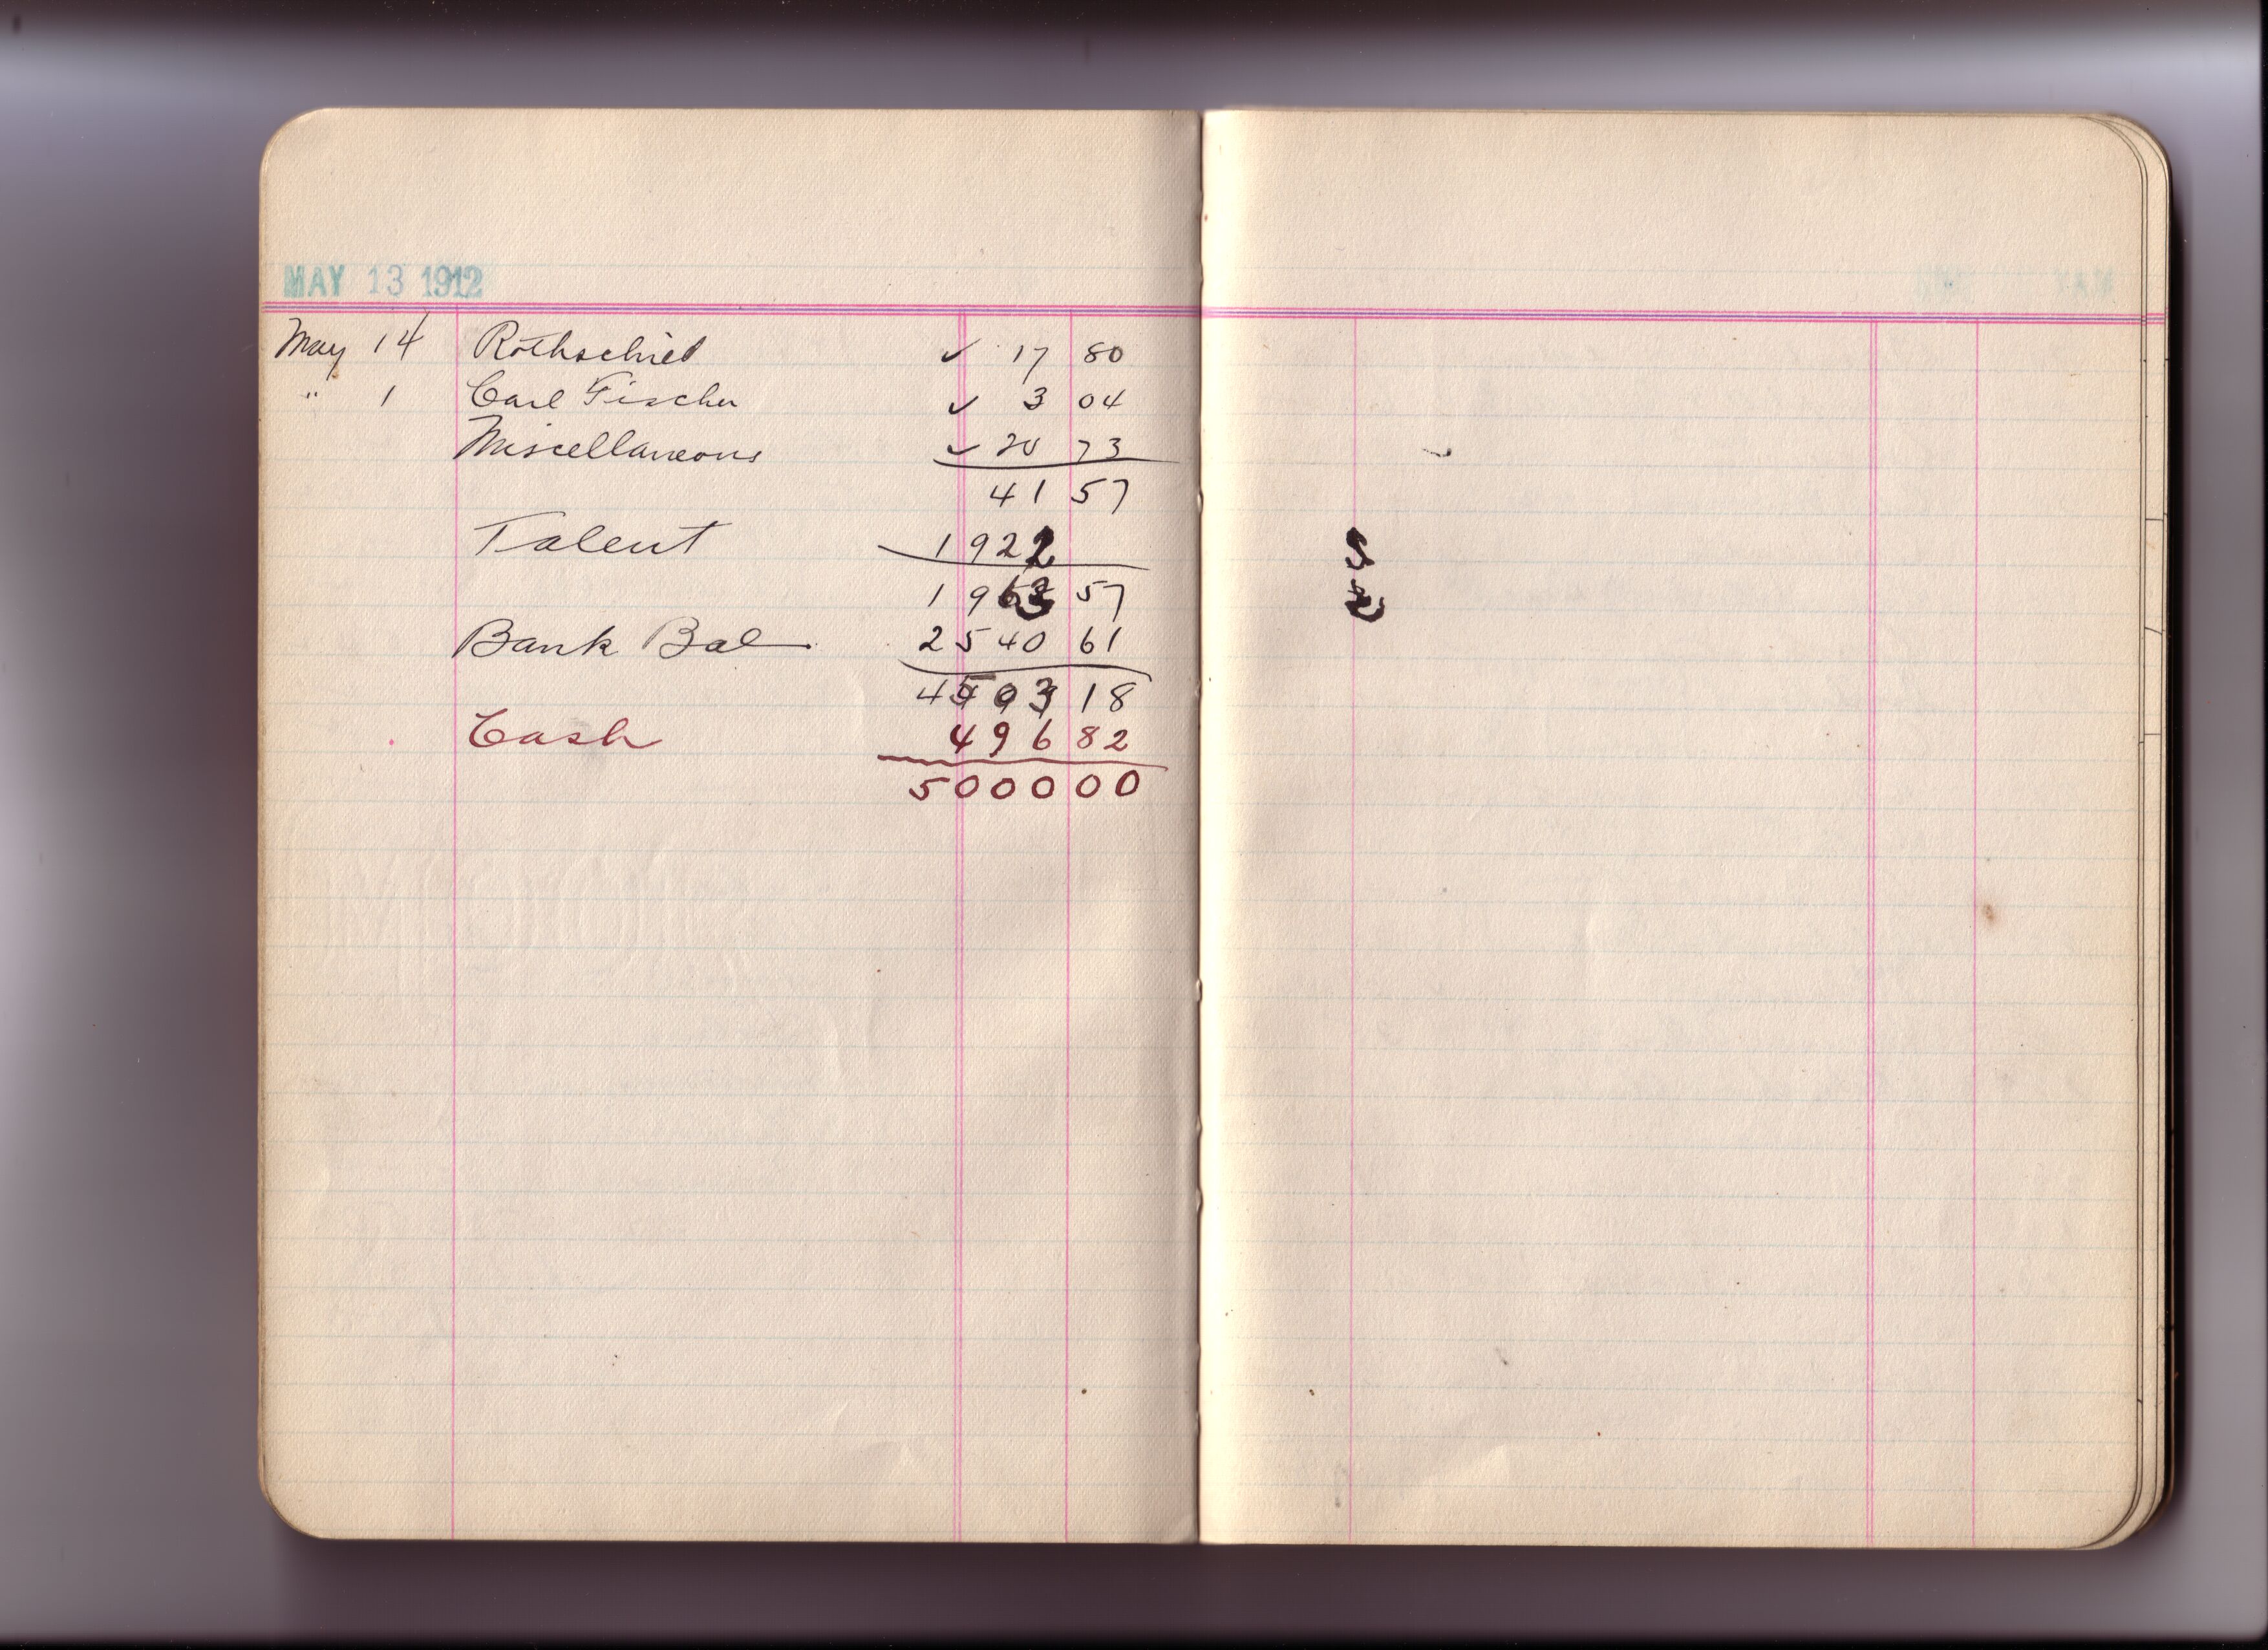 MAY 13 1912
May 14 Rothschild ✓ 17 80
" 1 Carl Fischer ✓ 3 04
Miscellaneous ✓ 20 73
41 57
Talent 1922
1963 57
Bank Bal 2540 61
4503 18
Cash 496 82
5000 00